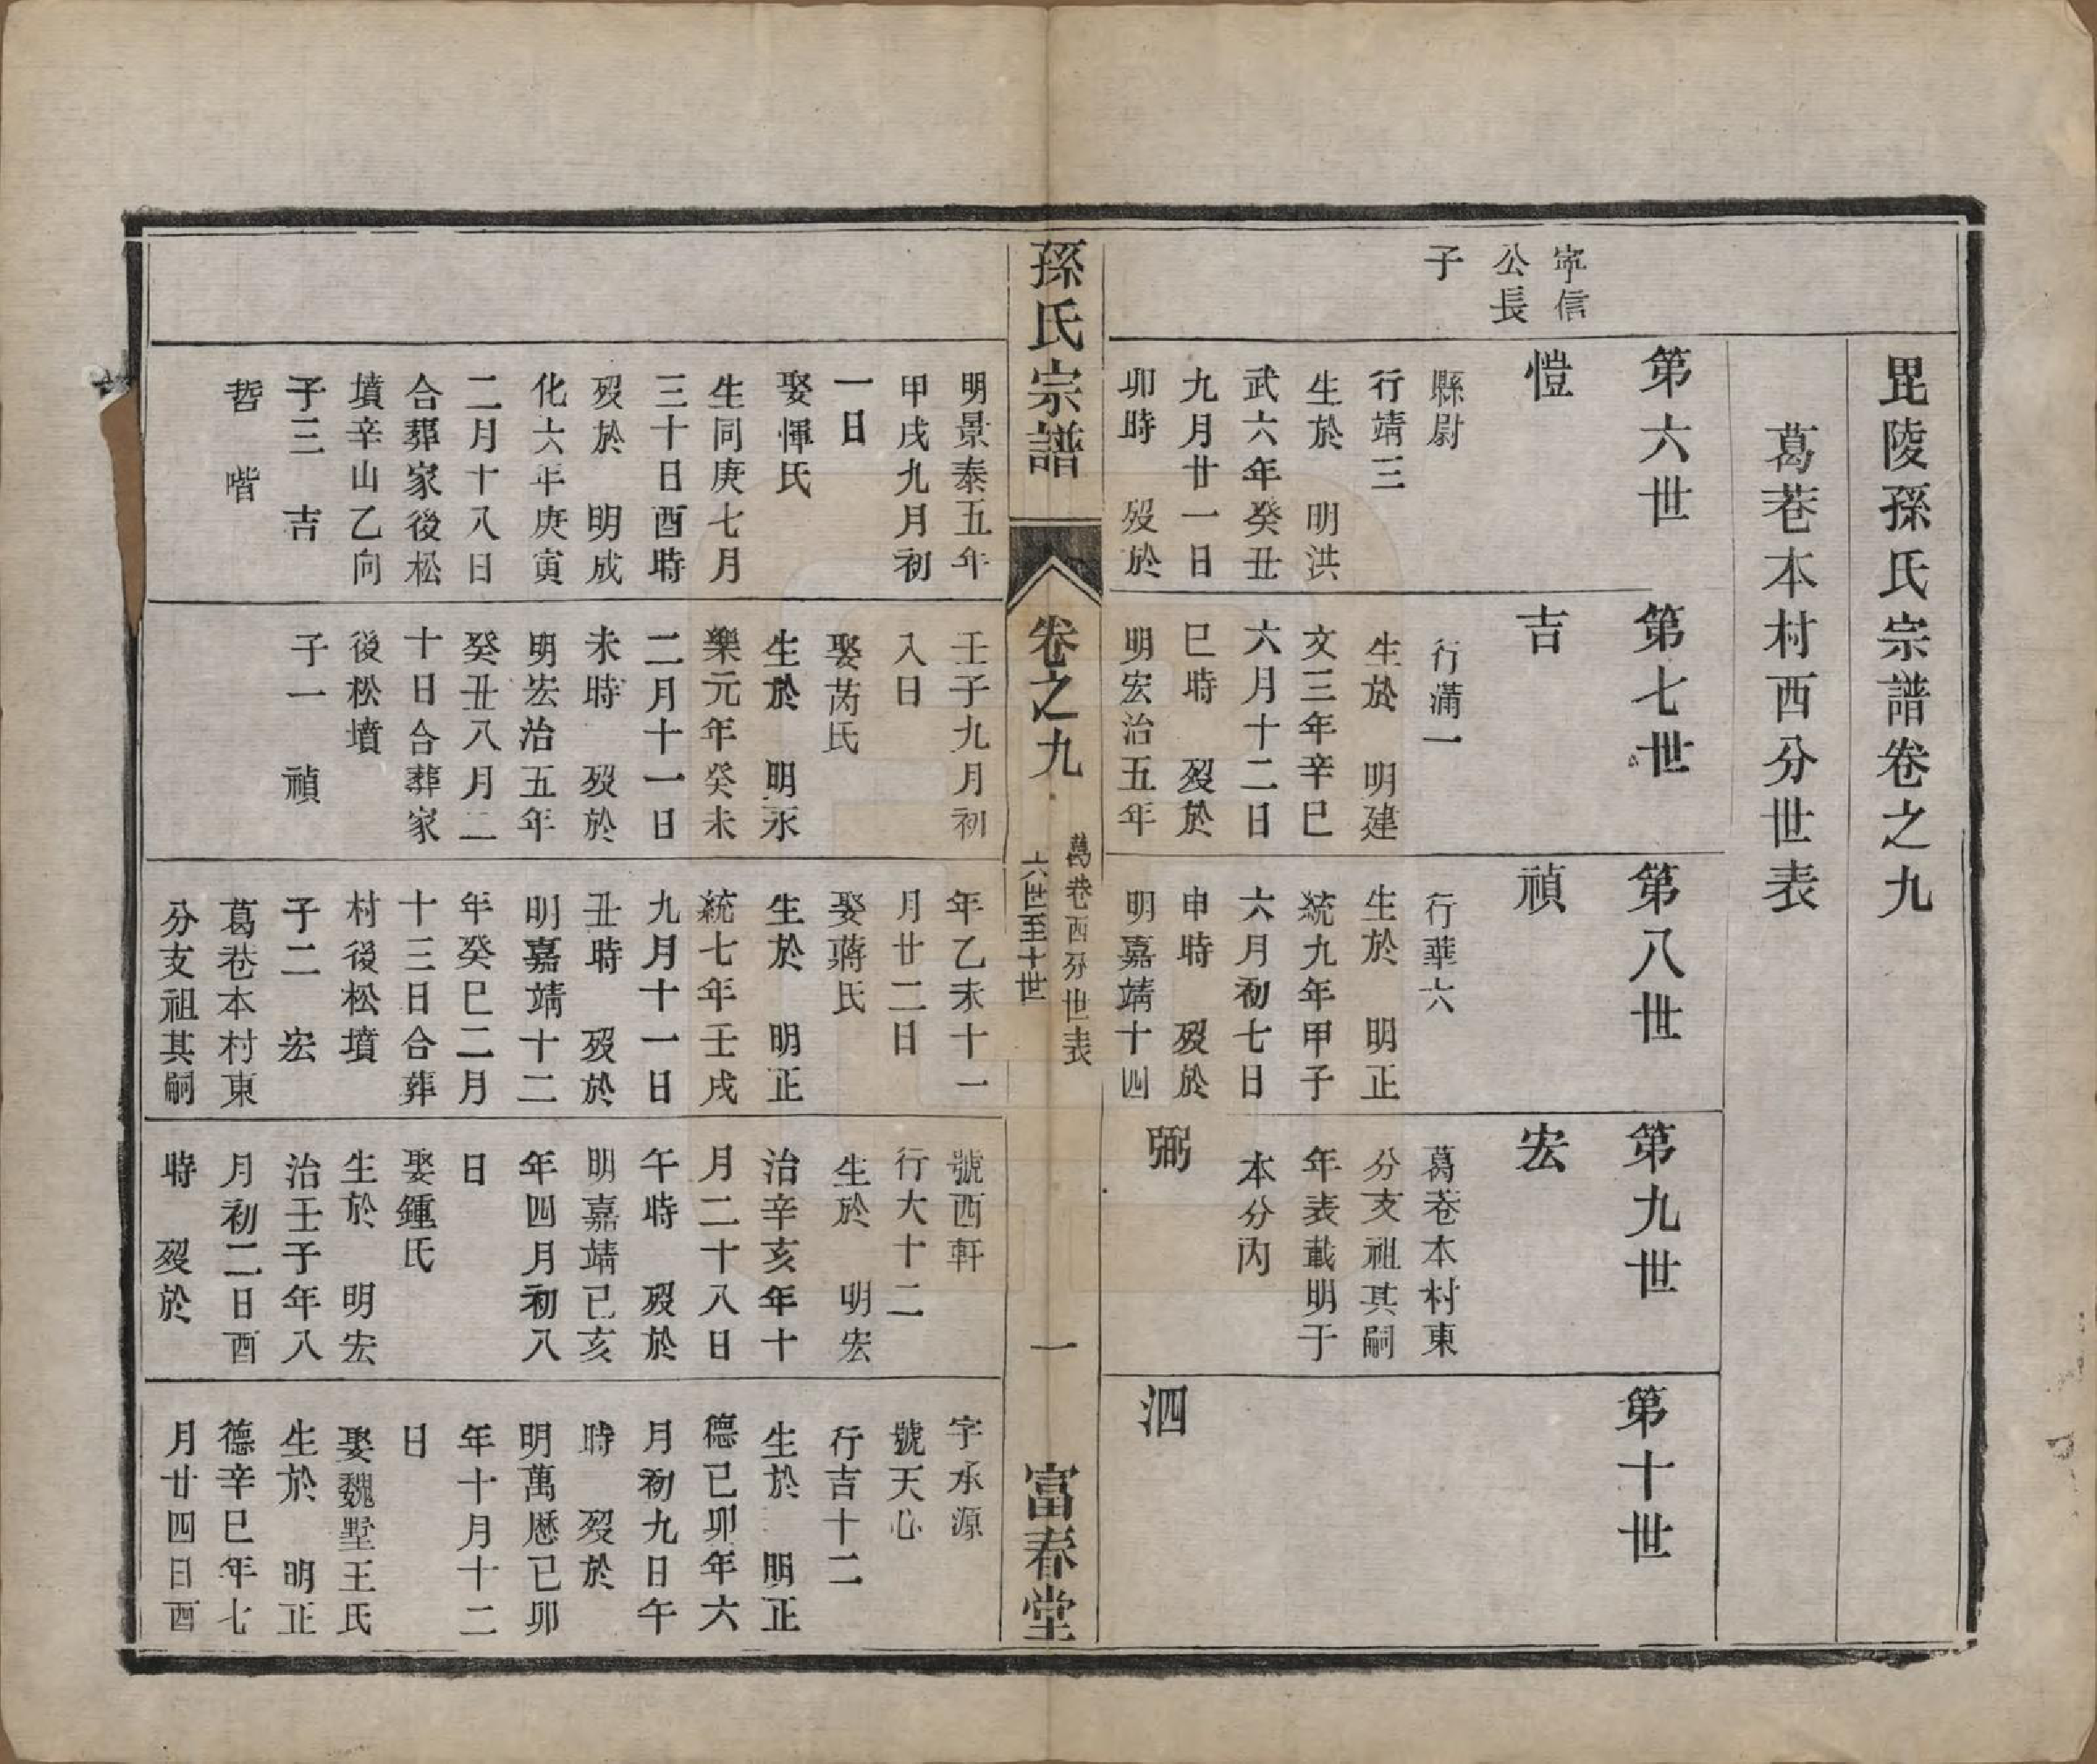 毘陵孫氏宗譜卷之九
葛巷本村西分世表
寧信
公長
子
第六世
愷
縣尉
行靖三
生於　明洪
武六年癸丑
九月廿一日
卯時　歿於
第七世
吉
行滿一
生於　明建
文三年辛巳
六月十二日
巳時　歿於
明宏治五年
第八世
禎
行華六
生於　明正
統九年甲子
六月初七日
申時　歿於
明嘉靖十四
第九世
宏
葛巷本村東
分支祖其嗣
年表載明于
本分內
弼
第十世
泗
孫氏宗譜
卷之九
葛巷西分世表
六世至十世
一
富春堂
明景泰五年
甲戌九月初
一日
娶惲氏
生同庚七月
三十日酉時
歿於　明成
化六年庚寅
二月十八日
合葬家後松
墳辛山乙向
子三　吉
哲　喈
壬子九月初
入日
娶芮氏
生於　明永
樂元年癸未
二月十一日
未時　歿於
明宏治五年
癸丑八月二
十日合葬家
後松墳
子一　禎
年乙未十一
月廿二日
娶蔣氏
生於　明正
統七年壬戌
九月十一日
丑時　歿於
明嘉靖十二
年癸巳二月
十三日合葬
村後松墳
子二　宏
葛巷本村東
分支祖其嗣
號西軒
行大十二
生於　明宏
治辛亥年十
月二十八日
午時　歿於
明嘉靖己亥
年四月初八
日
娶鍾氏
生於　明宏
治壬子年八
月初二日酉
時　歿於
字承源
號天心
行吉十二
生於　明正
德己卯年六
月初九日午
時　歿於
明萬歷己卯
年十月十二
日
娶魏墅王氏
生於　明正
德辛巳年七
月廿四日酉